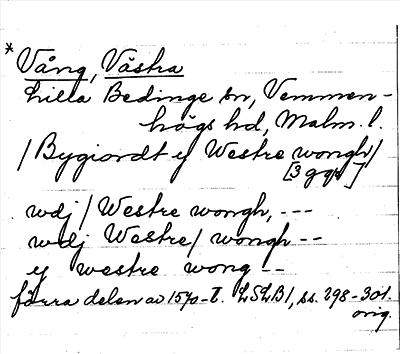 * Vång, Västra
Lilla Bedinge sn, Vemmen-
högs hd, Malm. l.
/Bygiordt y Westre wongh/
[3 ggr]
wdj / Westre wongh, ---
wdj Westre/ wongh --
y westre wong --
förra delen av 1570-t. LSLB1, ss. 298-301.
orig.